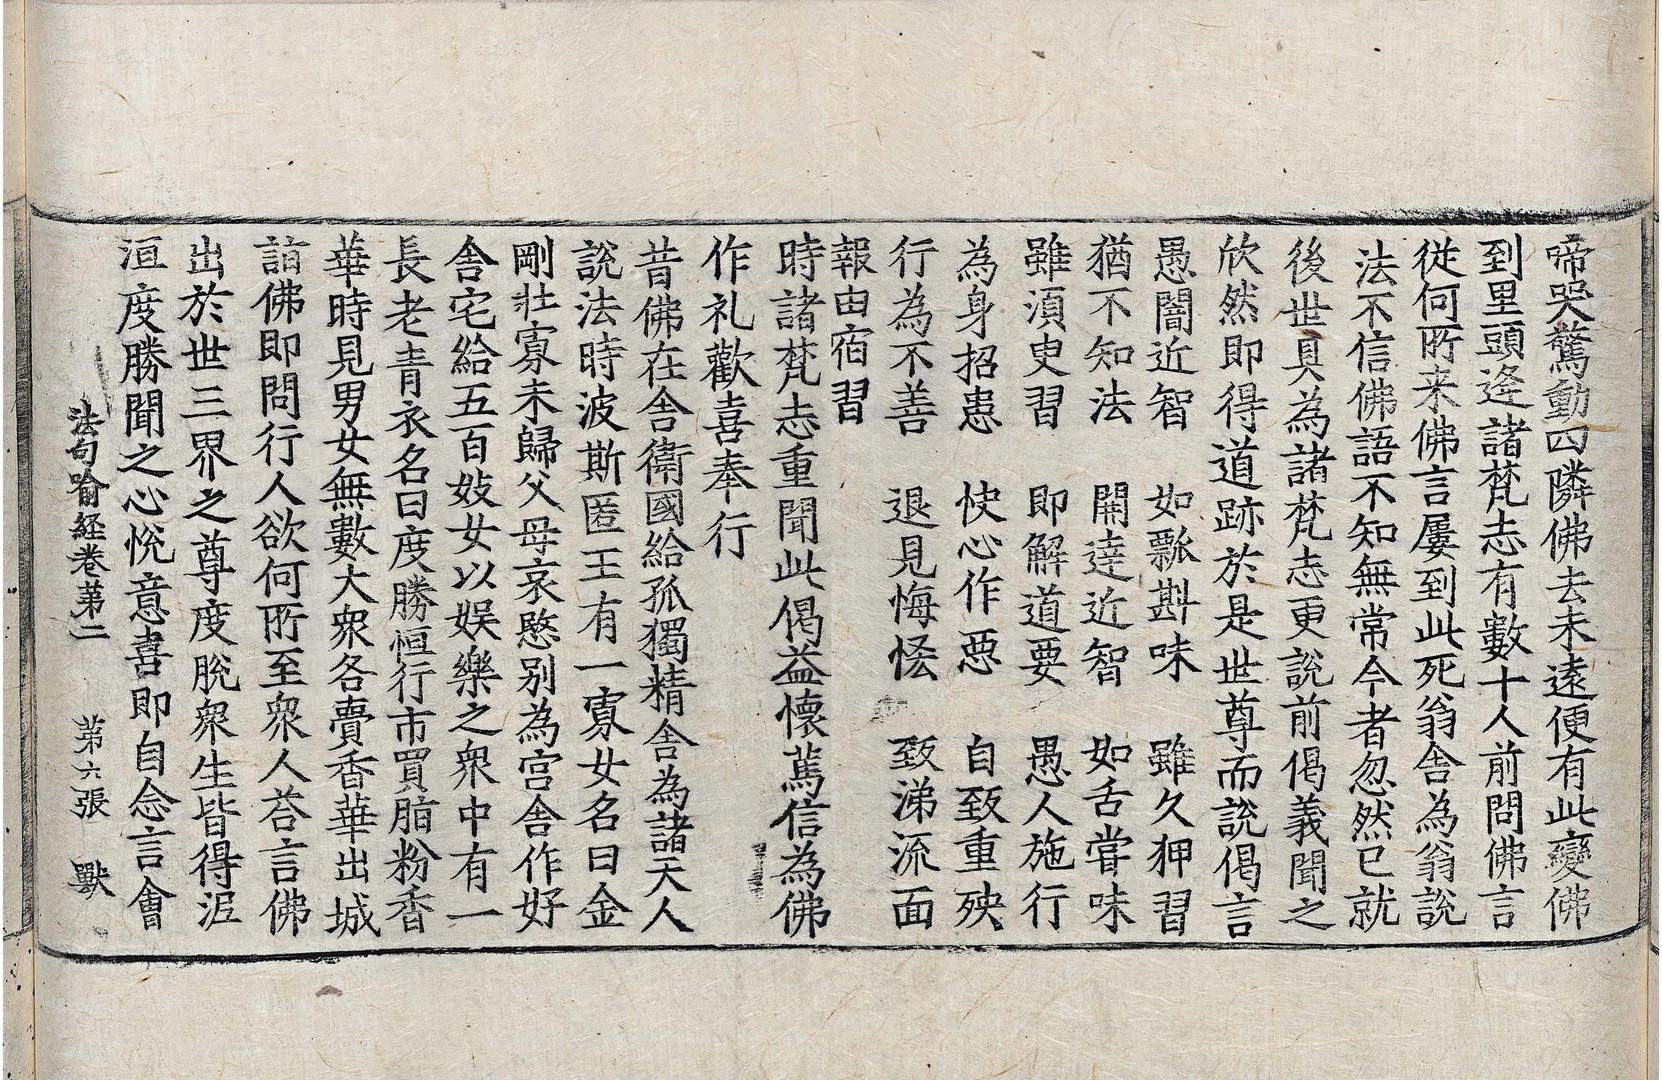 啼哭驚動四隣佛去未遠便有此變佛
到里頭逢諸梵志有數十人前問佛言
從何所来佛言屢到此死翁舍為翁說
法不信佛語不知無常今者忽然已就
後世具為諸梵志更說前偈義聞之
欣然即得道跡於是世尊而說偈言
愚闇近智　如瓢斟味　雖久狎習
猶不知法　開達近智　如舌甞味
雖湏臾習　即解道要　愚人施行
為身招患　快心作惡　自致重殃
行為不善　退見悔恡　致涕流面
報由宿習
時諸梵志重聞此偈益懷篤信為佛
作礼歡喜奉行
昔佛在舍衛國給孤獨精舍為諸天人
說法時波斯匿王有一寡女名曰金
剛壯寡未歸父母哀愍別為宮舍作好
舍宅給五百妓女以娛樂之衆中有一
長老青衣名曰度勝恒行市買脂粉香
華時見男女無數大衆各賷香華出城
詣佛即問行人欲何所至衆人荅言佛
出於世三界之尊度脫衆生皆得泥
洹度勝聞之心悅意喜即自念言會
法句喻経卷第二　第六張　獸